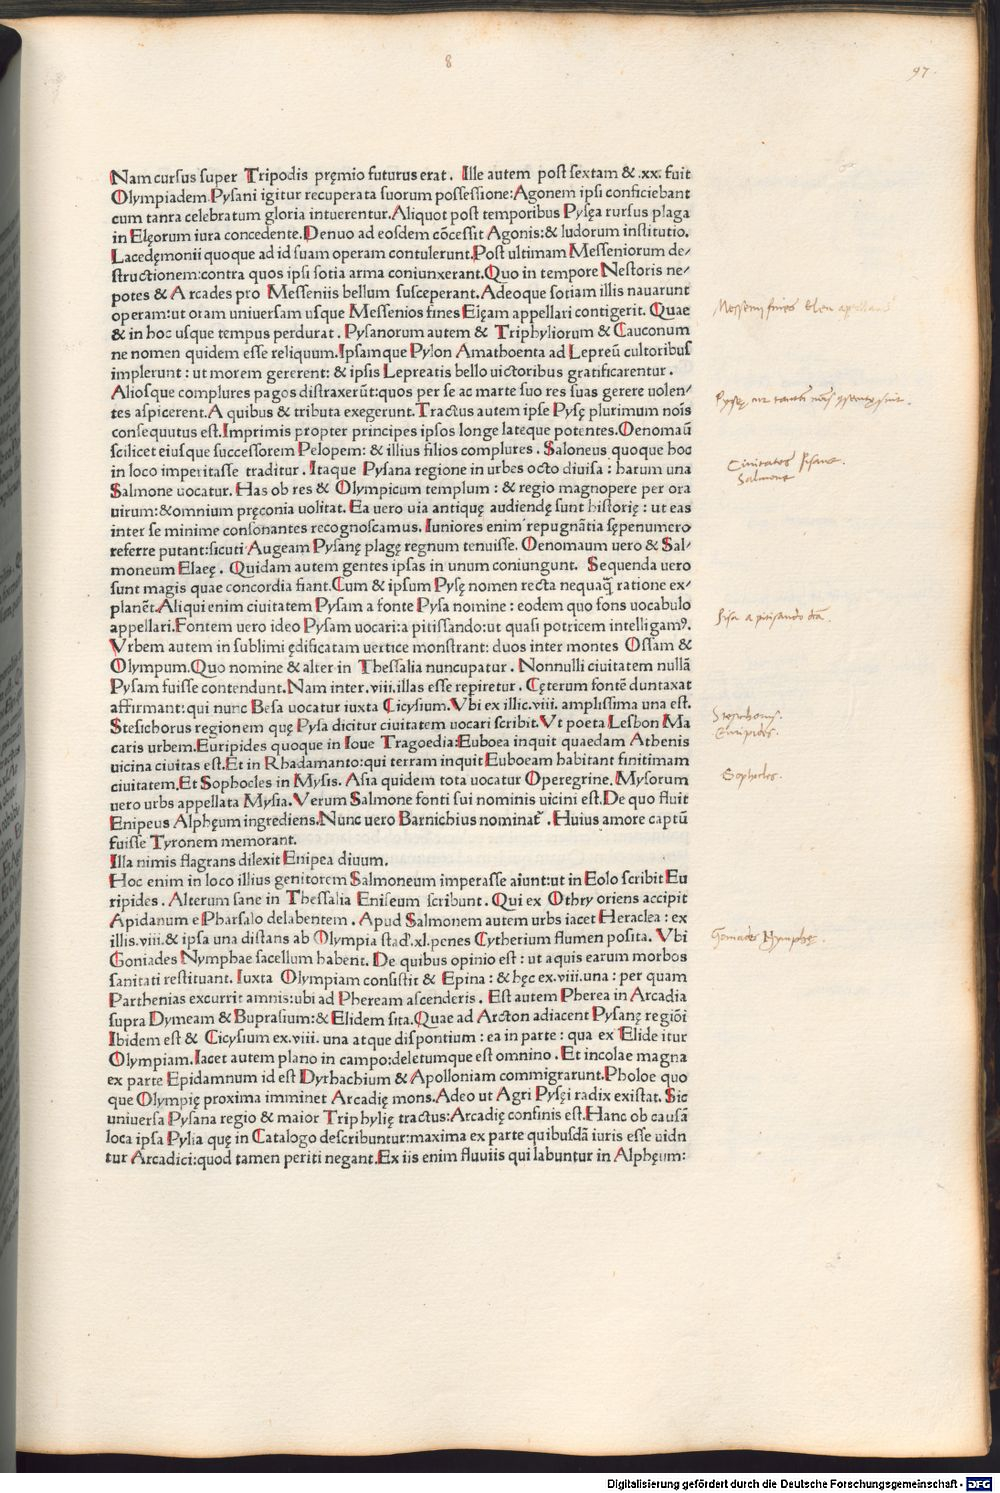 8
97.
Nam cursus super Tripodis pręmio futurus erat. Ille autem post sextam & .xx. fuit
Olympiadem. Pysani igitur recuperata suorum possessione: Agonem ipsi conficiebant
cum tanra celebratum gloria intuerentur. Aliquot post temporibus Pysęa rursus plaga
in Elęorum iura concedente. Denuo ad eosdem cōcessit Agonis: & ludorum institutio.
Lacedęmonii quoque ad id suam operam contulerunt. Post ultimam Messeniorum de/
structionem: contra quos ipsi sotia arma coniunxerant. Quo in tempore Nestoris ne/
potes & Arcades pro Messeniis bellum susceperant. Adeoque sotiam illis nauarunt
operam: ut oram uniuersam usque Messenios fines Elęam appellari contigerit. Quae
& in hoc usque tempus perdurat. Pysanorum autem & Triphyliorum & Cauconum
ne nomen quidem esse reliquum. Ipsamque Pylon Amathoenta ad Lepreū cultoribus
implerunt: ut morem gererent: & ipsis Lepreatis bello uictoribus gratificarentur.
Aliosque complures pagos distraxerūt: quos per se ac marte suo res suas gerere uolen/
tes aspicerent. A quibus & tributa exegerunt. Tractus autem ipse Pysę plurimum noīs
consequutus est. Imprimis propter principes ipsos longe lateque potentes. Oenomaū
scilicet eiusque successorem Pelopem: & illius filios complures. Saloneus quoque hoc
in loco imperitasse traditur. Itaque Pysana regione in urbes octo diuisa: harum una
Salmone uocatur. Has ob res & Olympicum templum: & regio magnopere per ora
uirum: & omnium pręconia uolitat. Ea uero uia antiquę audiendę sunt historię: ut eas
inter se minime consonantes recognoscamus. Iuniores enim repugnātia sępenumero
referre putant: sicuti Augeam Pysanę plagę regnum tenuisse. Oenomaum uero & Sal/
moneum Elaeę. Quidam autem gentes ipsas in unum coniungunt. Sequenda uero
sunt magis quae concordia fiant. Cum & ipsum Pysę nomen recta nequaq̄ ratione ex/
planēt. Aliqui enim ciuitatem Pysam a fonte Pysa nomine: eodem quo fons uocabulo
appellari. Fontem uero ideo Pysam uocari: a pitissando: ut quasi potricem intelligamꝰ.
Vrbem autem in sublimi ędificatam uertice monstrant: duos inter montes Ossam &
Olympum. Quo nomine & alter in Thessalia nuncupatur. Nonnulli ciuitatem nullā
Pysam fuisse contendunt. Nam inter .viii. illas esse repiretur. Cęterum fontē duntaxat
affirmant: qui nunc Besa uocatur iuxta Cicysium. Vbi ex illic .viii. amplissima una est.
Stesichorus regionem quę Pysa dicitur ciuitatem uocari scribit. Vt poeta Lesbon Ma
caris urbem. Euripides quoque in Ioue Tragoedia: Euboea inquit quaedam Athenis
uicina ciuitas est. Et in Rhadamanto: qui terram inquit Euboeam habitant finitimam
ciuitatem. Et Sophocles in Mysis. Asia quidem tota uocatur O peregrine. Mysorum
uero urbs appellata Mysia. Verum Salmone fonti sui nominis uicini est. De quo fluit
Enipeus Alphęum ingrediens. Nunc uero Barnichius nominat᷑. Huius amore captū
fuisse Tyronem memorant.
Illa nimis flagrans dilexit Enipea diuum.
Hoc enim in loco illius genitorem Salmoneum imperasse aiunt: ut in Eolo scribit Eu
ripides. Alterum sane in Thessalia Eniseum scribunt. Qui ex Othry oriens accipit
Apidanum e Pharsalo delabentem. Apud Salmonem autem urbs iacet Heraclea: ex
illis .viii. & ipsa una distans ab Olympia stad̛. xl. penes Cytherium flumen posita. Vbi
Goniades Nymphae sacellum habent. De quibus opinio est: ut aquis earum morbos
sanitati restituant. Iuxta Olympiam consistit & Epina: & hęc ex .viii. una: per quam
Parthenias excurrit amnis: ubi ad Pheream ascenderis. Est autem Pherea in Arcadia
supra Dymeam & Buprasium: & Elidem sita. Quae ad Arcton adiacent Pysanę regiōi
Ibidem est & Cicysium ex .viii. una atque dispontium: ea in parte: qua ex Elide itur
Olympiam. Iacet autem plano in campo: deletumque est omnino. Et incolae magna
ex parte Epidamnum id est Dyrhachium & Apolloniam commigrarunt. Pholoe quo
que Olympię proxima imminet Arcadię mons. Adeo ut Agri Pysęi radix existat. Sic
uniuersa Pysana regio & maior Triphylię tractus: Arcadię confinis est. Hanc ob causā
loca ipsa Pylia quę in Catalogo describuntur: maxima ex parte quibusdā iuris esse uidn
tur Arcadici: quod tamen periti negant. Ex iis enim fluuiis qui labuntur in Alphęum:
Messenij fines
Ciuitates Pisane.
Salmone
Pisa a pitisando
Stesichorus.
Euripides.
Sophocles.
Goniades Nymphę.
Digitalisierung gefördert durch die Deutsche Forschungsgemeinschaft - DFG